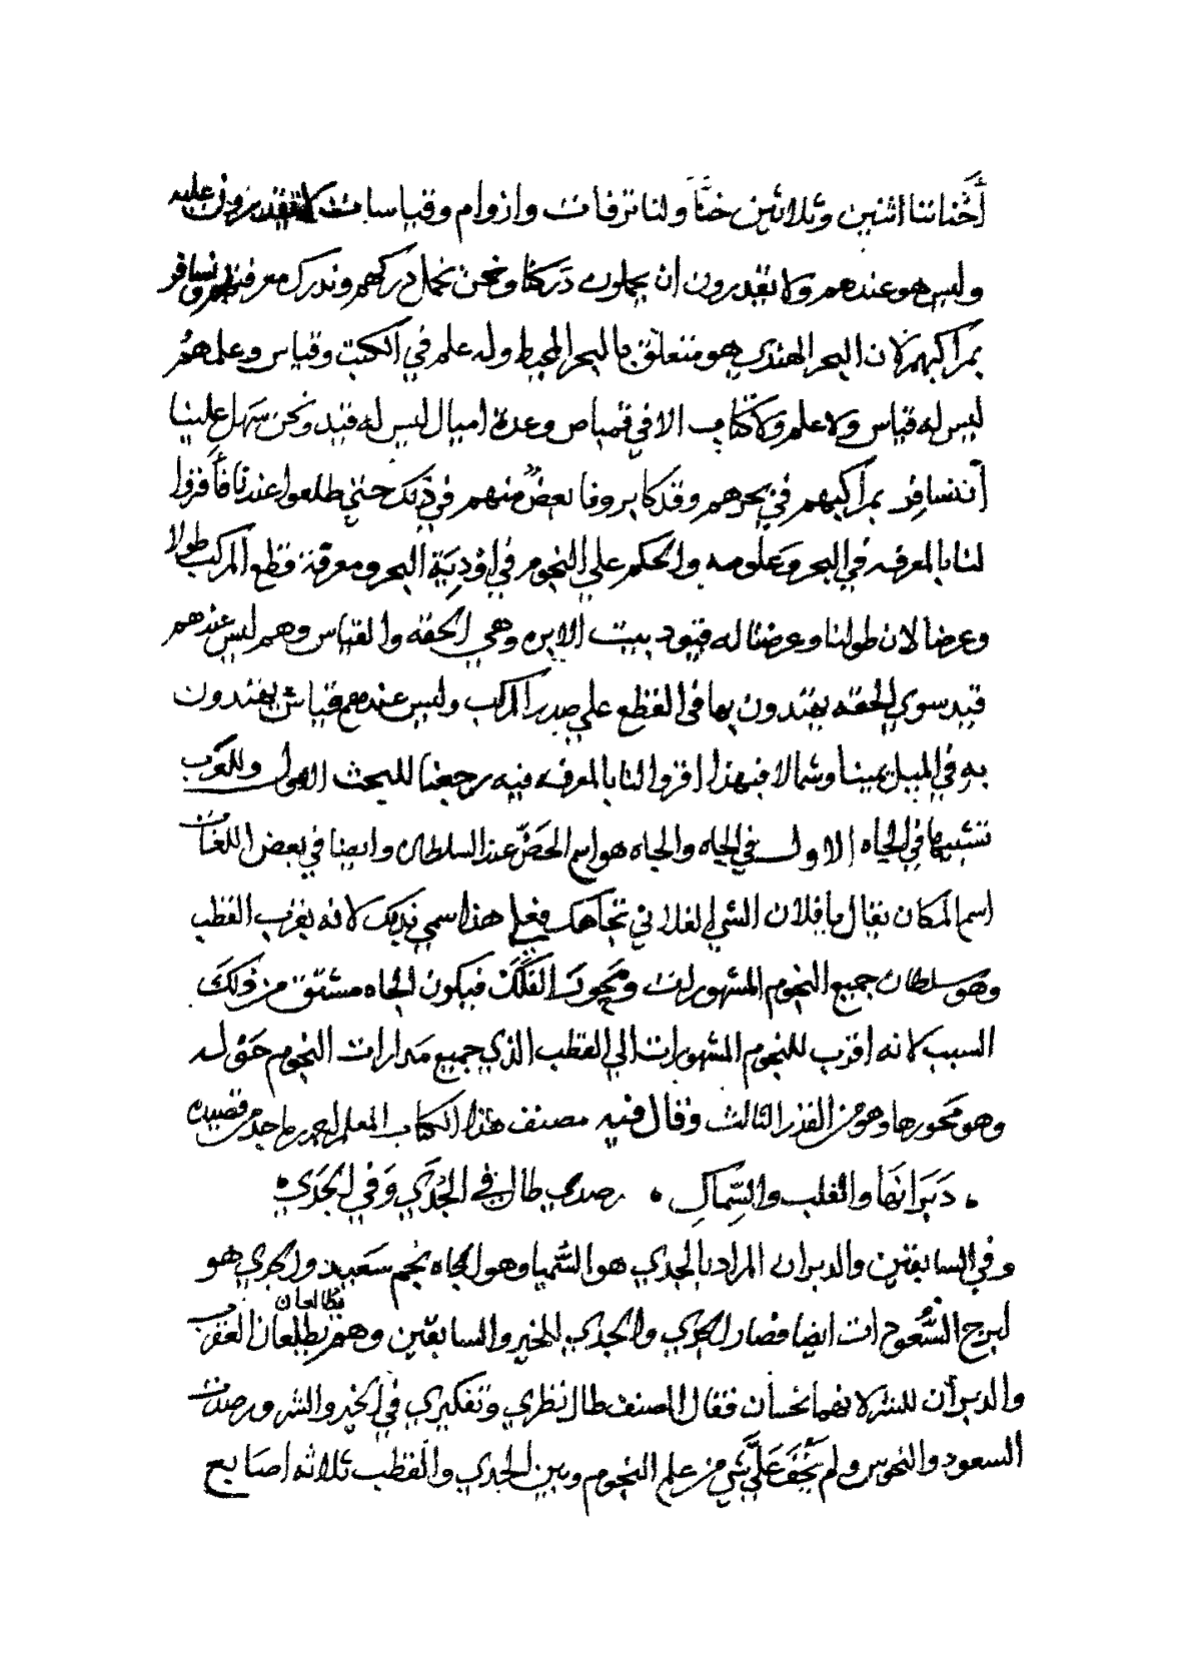 أخناننا اثنين وثلاثين خنًّا ولنا ترفات وازوام وقياسات لا يقدرون عليه
وليس هو عندهم ولا يقدرون ان يحملون دركنا ونحن نحمل دركهم وندرك معرفتهم ونسافر
بمراكبهم لان البحر الهندي هو متعلق بالبحر المحيط وله علم في الكتب وقياس وعلمهم
ليس له قياس ولا علم ولا كتاب الا في قمباص وعدة اميال ليس له قيد ونحن سهل علينا
أن نسافر بمراكبهم في بحرهم وقد كابرونا بعضٌ منهم في ذلك حتي طلعوا عندنا فأقزوا
لنا بالمعرفه في البحر وعلومه والحكم علي النجوم في اودِيَة البحر ومعرفة قطع المركب طولا
وعرضا لان طولنا وعرضنا له قيود بيت الابره وهي الحقه والقياس وهم ليس عندهم
قيد سوي الحقه يهتدون بها في القطع علي صدر المركب وليس عندهم قياس يهتدون
به في الميل يمينا وشمالا فبهذا اقزوا لنا بالمعرفه فيه رجعنا للبحث الاول وللعرب
تشبيها في الجاه الاول في الجاه والجاه هو اسم الحَضّ عند السلطان وايضا في بعض اللغات
اسم المكان يقال يا فلان الشي الفلاني تجاهك فعلي هذا سمي بذلك لانه بقرب القطب
وهو سلطان جميع النجوم المشهورات ومَحور الفَلَك فيكون الجاه مشتق من ذلك
السبب لانه اقرب للنجوم المشهورات الي القطب الذي جميع مدارات النجوم حَوْله
وهو مَحورها وهو من القدر الثالث وقال فيه مصنف هذا الكتاب المعلم احمد بن ماجد من قصيدة
• دَبَرانَها والقلب والسِّماكِ • رصدي طال في الجُدَي وَفي الجَدي •
وفي السابقين والدبران المراد بالجدي هو السُّميا وهو الجاه نجم سَعيد والجدي هو
لبرج السُّعودات ايضا فصار الجدي والجدي للخير والسابقين وهم يطلعان العقرب
يطالعان
والدبران للشر لانهما نحسان فقال المصنف طال نظري وتفكيري في الخير والشر ورصدت
السعود والنحوس ولم يَخْفَ عَلَيَّ شي من علم النجوم وبين الجدي والقطب ثلاثه اصابع